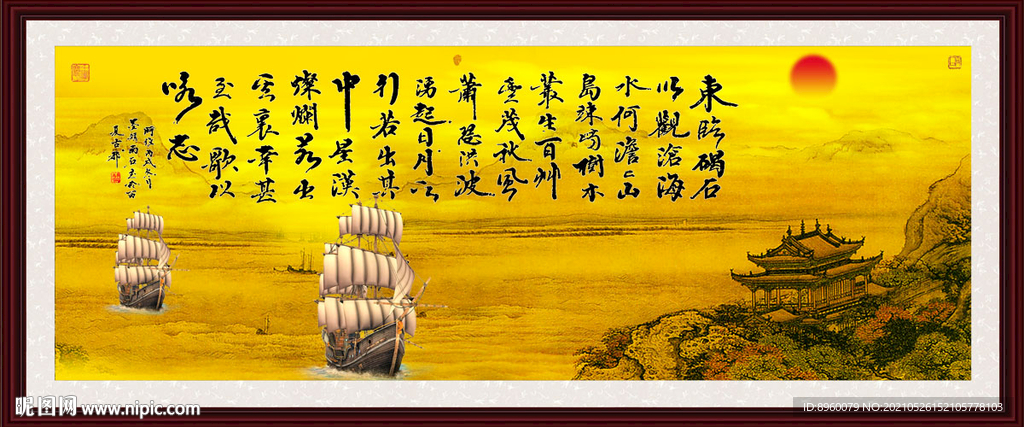 東臨碣石
以觀滄海
水何澹々山
島竦峙樹木
叢生百艸
豊茂秋風
蕭瑟洪波
湧起日月之
行若出其
中星漢
燦爛若出
其裏幸甚
至哉歌以
咏志
昵图网 www.nipic.com
ID:8960079 NO:20210526152105778103